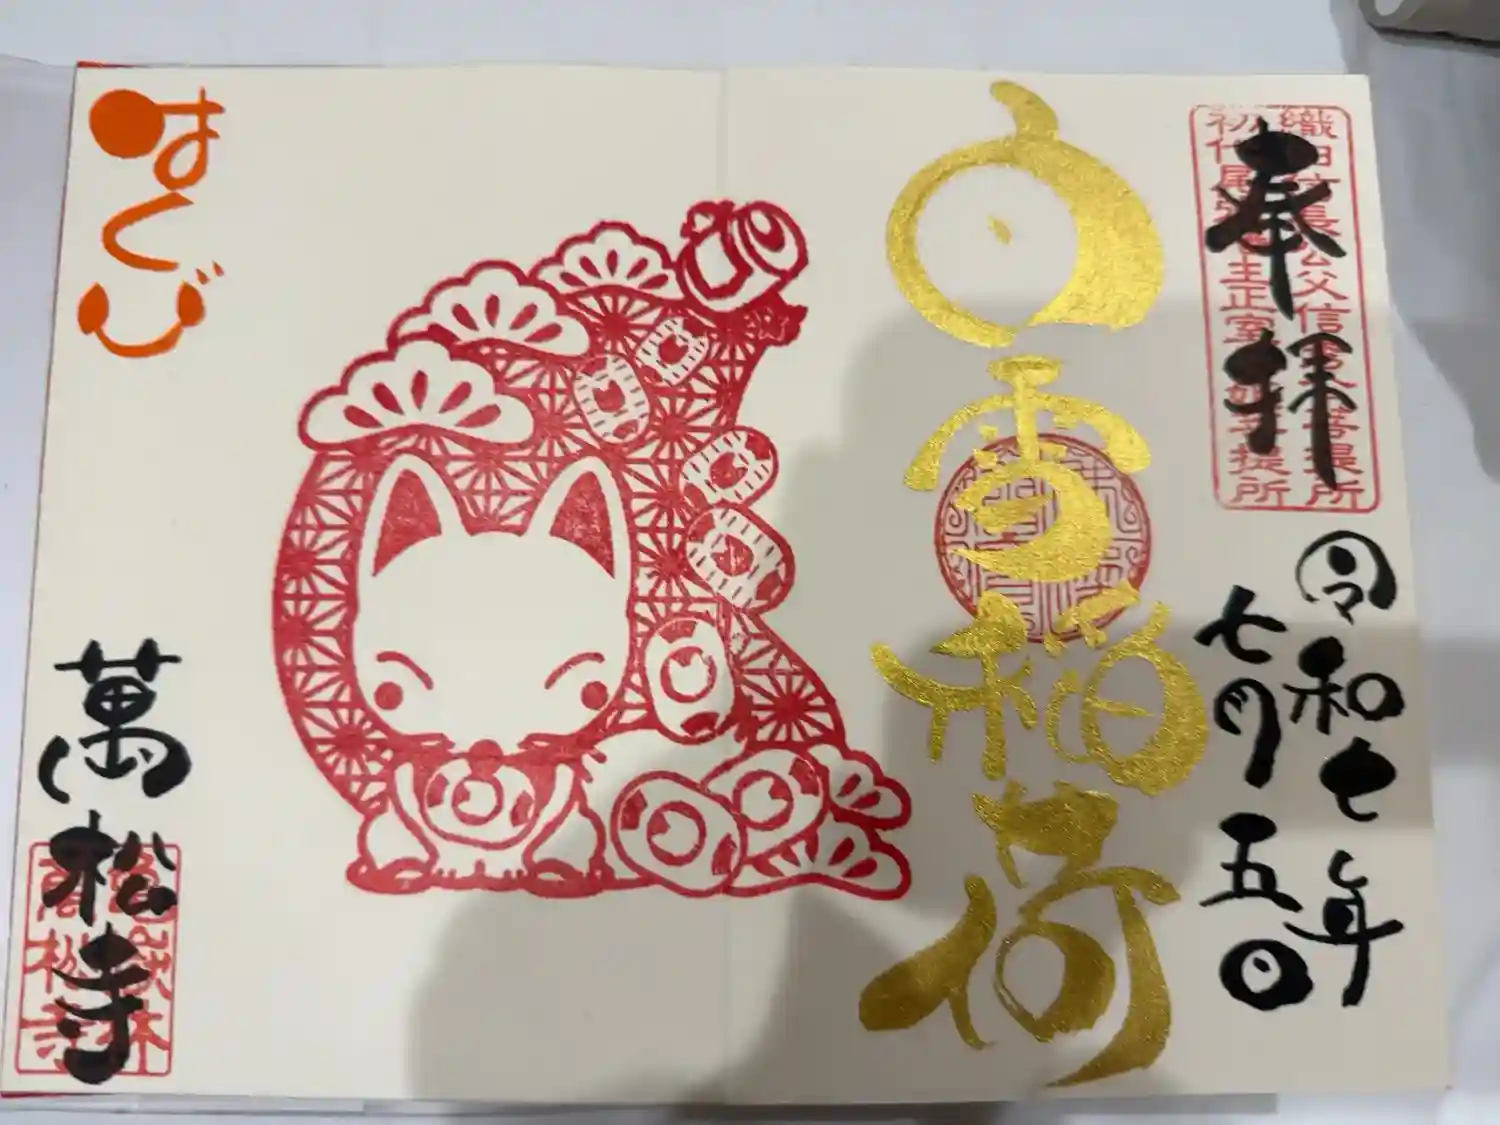 奉拝
織田信長公父信秀公菩提所
初代尾張藩主正室春姫菩提所
令和七年
七月五日
白雪稲荷
はくび
萬松寺
亀嶽林
萬松寺